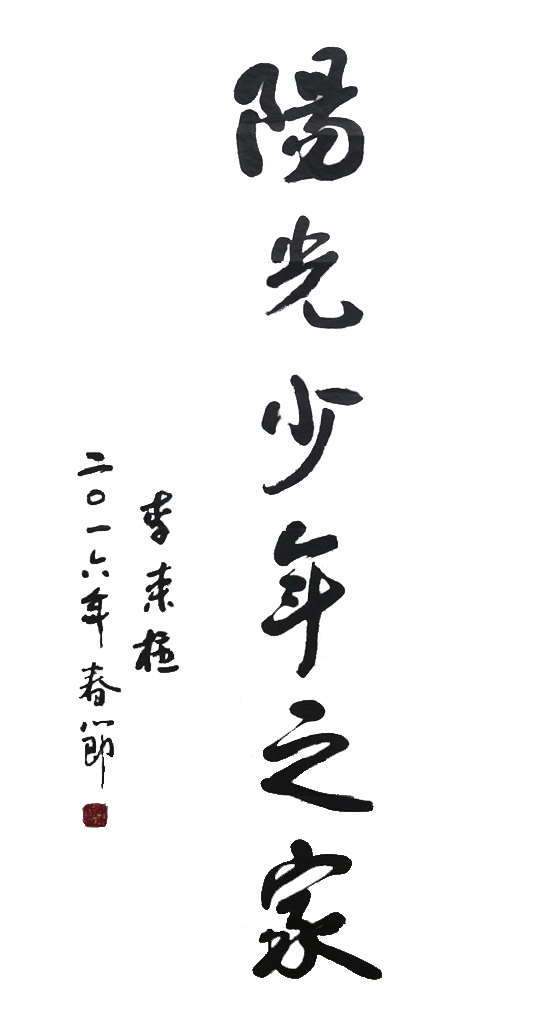 陽光少年之家
李来柱
二〇一六年春節